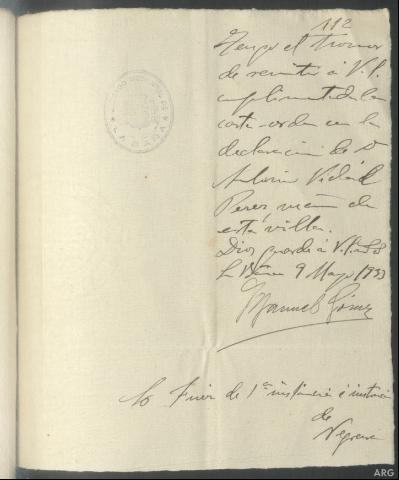 112
Tengo el honor
de remitir á V.S.
cumplimentada la
carta-orden con la
declaracion de Dn
Antonio Vidal
Perez vecino de
esta villa.
Dios guarde á V.S.
9 Mayo 1933
Manuel Gómez
Sr Juez de 1ª instancia é instrucción
de
Negreira
ARG